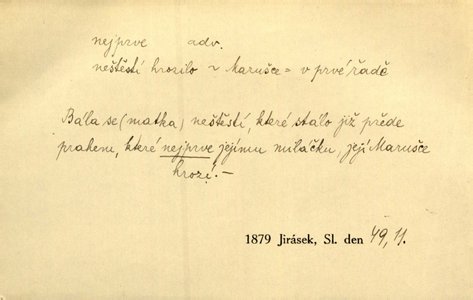 nejprve adv.
neštěstí hrozilo ~ Marušce = v prvé řadě
Bála se (matka) neštěstí, které stalo již přede
prahem, které nejprve jejímu miláčku, její Marušce
hrozí. —
1879 Jirásek, Sl. den 49, 11.